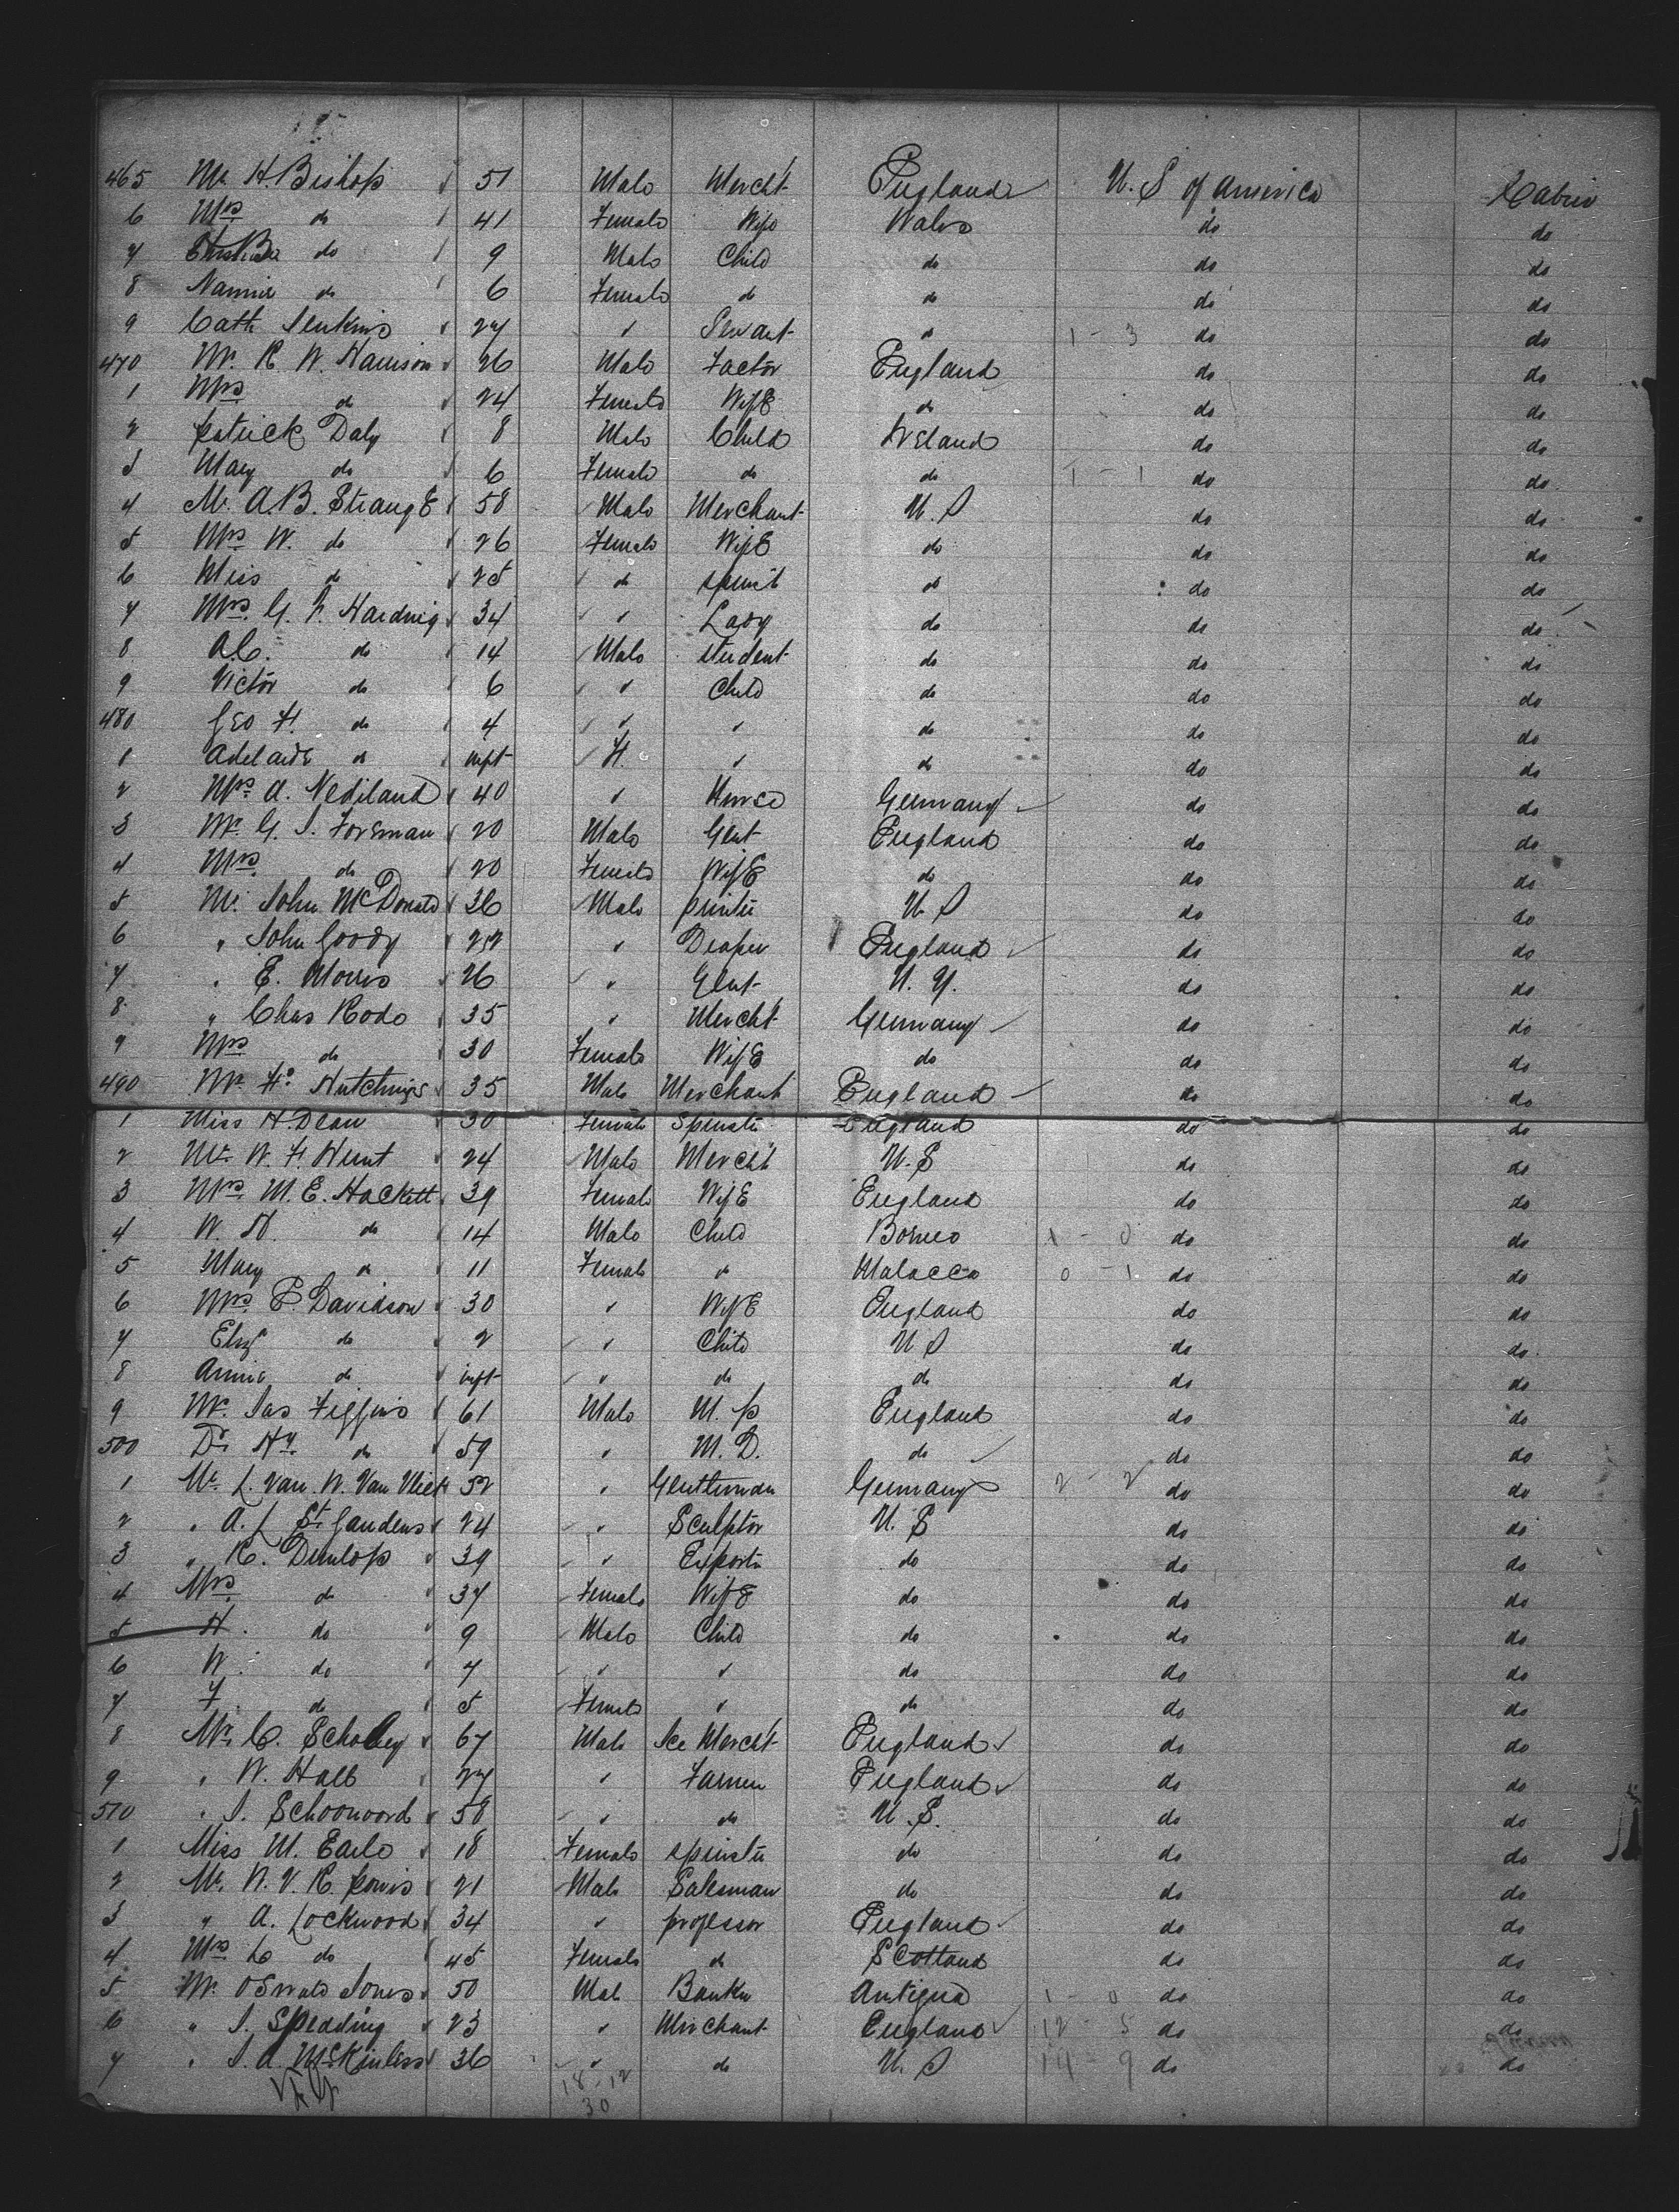 465 Mr. H. Bishop 51 Male Mercht England U. S of America Cabin
6 Mrs do 41 Female Wife Wales do do
7 do 9 Male Child do do do
8 Nannie do 6 Female do do do do
9 Cath Jenkins 27 " Servant " 1 - 3 do do
470 Mr. R. W. Harrison 26 Male Factor England do do
1 Mrs do 24 Female Wife do do do
2 Patrick Daly 8 Male Child Ireland do do
3 Mary do 6 Female do do 1 - 1 do do
4 Mr. A.B. Strange 58 Male Merchant U. S do do
5 Mrs W. do 26 Female Wife do do do
6 Miss do 25 do spinst do do do
7 Mrs. G. F. Harding 34 " Lady do do do
8 A.C. do 14 Male student do do do
9 Victor do 6 " Child do do do
480 Geo H. do 4 " " do do do
1 Adelaide do inft F. " do do do
2 Mrs A. Nediland 40 " Nurse Germany do do
3 Mr. G. S. Foreman 20 Male Gent England do do
4 Mrs. do 20 Female Wife do do do
5 Mr. John McDonald 36 Male printer U. S do do
6 " John Goody 22 " Draper England do do
7 " E. Morris 26 " Gent N. Y. do do
8 " Chas Rodo 35 " Mercht Germany do do
9 Mrs do 30 Female Wife do do do
490 Mr. Hutchings 35 Male Merchant England do do
1 Miss H. Dean 30 Female Spinster England do do
2 Mr. W. H. Hunt 24 Male Mercht U. S do do
3 Mrs. M. E. Hackett 39 Female Wife England do do
4 W. H. do 14 Male Child Borneo 1 - 0 do do
5 Mary do 11 Female " Malacca 0 - 1 do do
6 Mrs. E. Davidson 30 " Wife England do do
7 Eliz do 2 " Child U S do do
8 Annie do inft " do do do do
9 Mr. Jas Figgins 61 Male M. P England do do
500 Dr. Hy. do 59 " M. D. do do do
1 Mr. L. Van. W. Van Vliet 52 " Gentleman Germany 2 - 2 do do
2 " A. L St. Gaudens 24 " Sculptor U. S do do
3 " R. Dunlop 39 " Exporter do do do
4 Mrs. do 37 Female Wife do do do
5 H. do 9 Male Child do do do
6 W. do 7 " " do do do
7 F. do 5 Female " do do do
8 Mr. C. Scholey 67 Male Ice Mercht England do do
9 " W. Hall 27 " Farmer England do do
510 " J. Schoonoord 58 " do U. S. do do
1 Miss M. Earle 18 Female spinster do do do
2 Mr. N. V. R. Powis 21 Male Salesman do do do
3 " A. Lockwood 34 " professor England do do
4 Mrs L do 45 Female do Scotland do do
5 Mr. Oswald Jones 50 Male Banker Antigua 1 - 0 do do
6 " J. Spedding 23 " Merchant England 12 - 5 do do
7 " J. A. McKinless 36 " do U. S 19 - 9 do do
18 - 12
30